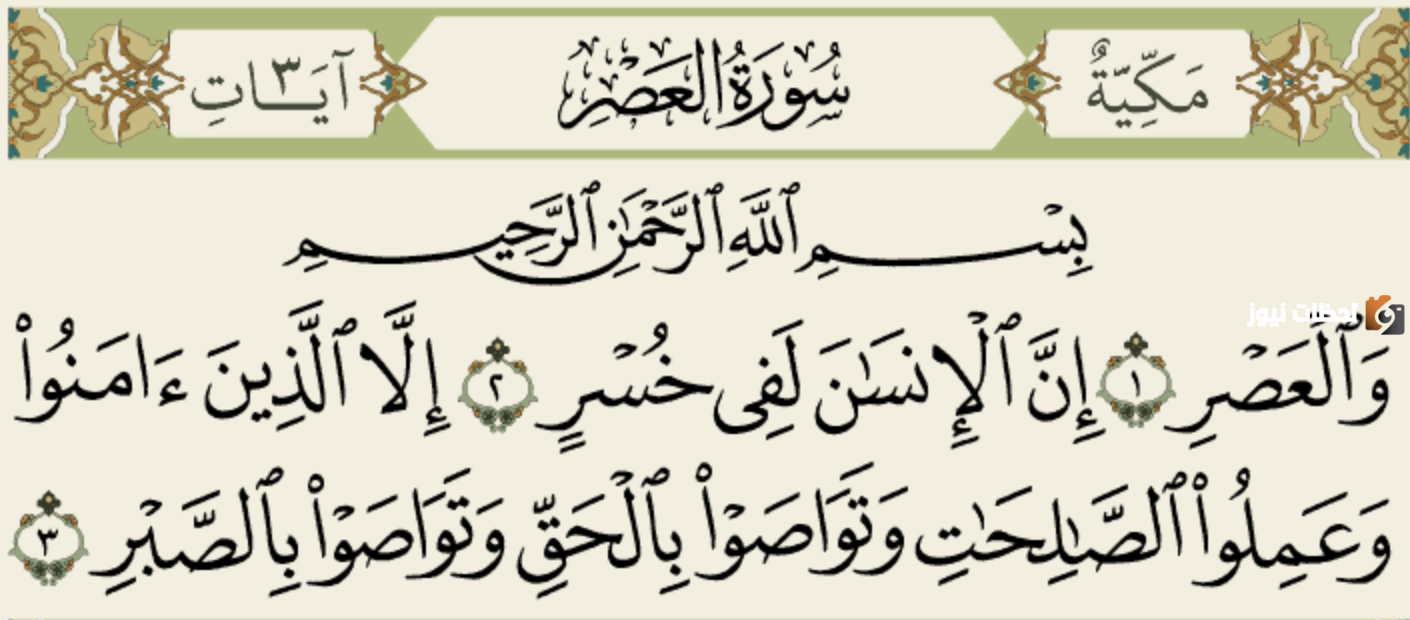 مَكِّيَّةٌ سُورَةُ الْعَصْرِ ٣ آيَاتِ
بِسْمِ ٱللَّهِ ٱلرَّحْمَٰنِ ٱلرَّحِيمِ
لحظات نيوز
وَٱلْعَصْرِ ١ إِنَّ ٱلْإِنسَٰنَ لَفِى خُسْرٍ ٢ إِلَّا ٱلَّذِينَ ءَامَنُوا۟
وَعَمِلُوا۟ ٱلصَّٰلِحَٰتِ وَتَوَاصَوْا۟ بِٱلْحَقِّ وَتَوَاصَوْا۟ بِٱلصَّبْرِ ٣